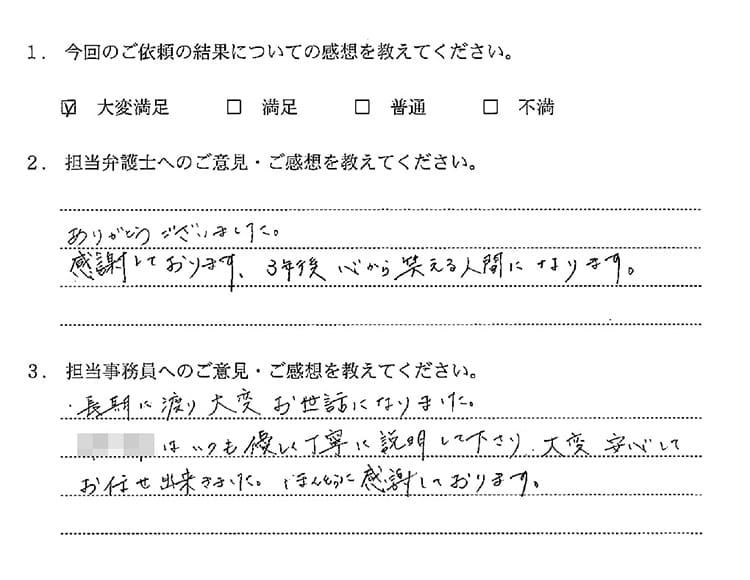 1. 今回のご依頼の結果についての感想を教えてください。
☑ 大変満足 □ 満足 □ 普通 □ 不満
2. 担当弁護士へのご意見・ご感想を教えてください。
ありがとうございました。
感謝しております、3年後 心から笑える人間になります。
3. 担当事務員へのご意見・ご感想を教えてください。
・長期に渡り大変お世話になりました。
はいつも優しく丁寧に説明して下さり、大変安心して
お任せ出来ました。ほんとうに感謝しております。